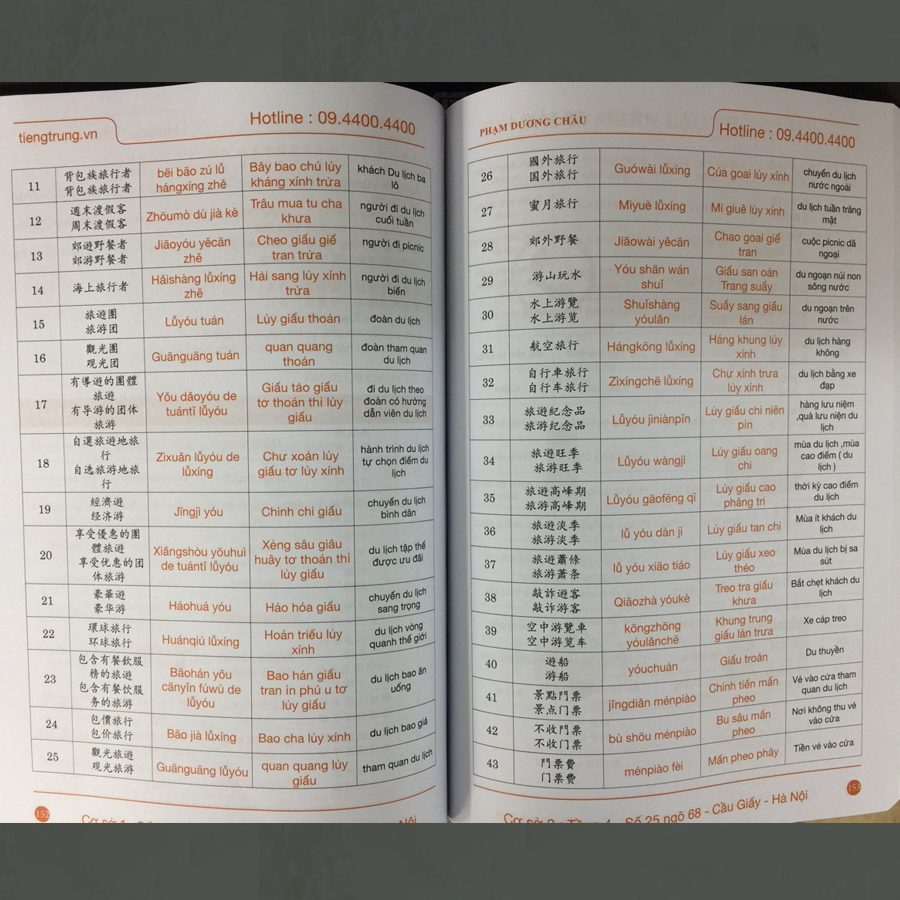 tiengtrung.vn
Hotline : 09.4400.4400
11
背包族旅行者
背包族旅行者
bēi bāo zú lǚ
hángxíng zhě
Bây bao chú lủy
kháng xính trửa
khách Du lịch ba
lô
12
週末渡假客
周末渡假客
Zhōumò dù jià kè
Trâu mua tu cha
khưa
người đi du lịch
cuối tuần
13
郊遊野餐者
郊游野餐者
Jiāoyóu yěcān
zhě
Cheo giấu giể
tran trửa
người đi picnic
14
海上旅行者
Hǎishàng lǚxíng
zhě
Hải sang lủy xính
trửa
người đi du lịch
biển
15
旅遊團
旅游团
Lǚyóu tuán
Lủy giấu thoán
đoàn du lịch
16
觀光團
观光团
Guānguāng tuán
quan quang
thoán
đoàn tham quan
du lịch
17
有導遊的團體
旅遊
有导游的团体
旅游
Yǒu dǎoyóu de
tuántǐ lǚyóu
Giẩu tảo giấu
tơ thoán thỉ lủy
giấu
đi du lịch theo
đoàn có hướng
dẫn viên du lịch
18
自選旅遊地旅
行
自选旅游地旅
行
Zìxuǎn lǚyóu de
lǚxíng
Chư xoản lủy
giấu tơ lủy xính
hành trình du lịch
tự chọn điểm du
lịch
19
經濟遊
经济游
Jīngjì yóu
Chinh chi giấu
chuyến du lịch
bình dân
20
享受優惠的團
體旅遊
享受优惠的团
体旅游
Xiǎngshòu yōuhuì
de tuántǐ lǚyóu
Xẻng sâu giâu
huây tơ thoán thỉ
lủy giấu
du lịch tập thể
được ưu đãi
21
豪華遊
豪华游
Háohuá yóu
Háo hóa giấu
chuyến du lịch
sang trọng
22
環球旅行
环球旅行
Huánqiú lǚxíng
Hoán triếu lủy
xính
du lịch vòng
quanh thế giới
23
包含有餐飲服
榜的旅遊
包含有餐饮服
务的旅游
Bāohán yǒu
cānyǐn fúwù de
lǚyóu
Bao hán giẩu
tran ỉn phú u tơ
lủy giấu
du lịch bao ăn
uống
24
包價旅行
包价旅行
Bāo jià lǚxíng
Bao cha lủy xính
du lịch bao giá
25
觀光旅遊
观光旅游
Guānguāng lǚyóu
quan quang lủy
giấu
tham quan du lịch
152
PHẠM DƯƠNG CHÂU
Hotline : 09.4400.4400
26
國外旅行
国外旅行
Guówài lǚxíng
Cúa goai lủy xính
chuyến du lịch
nước ngoài
27
蜜月旅行
Mìyuè lǚxíng
Mi giuê lủy xính
du lịch tuần trăng
mật
28
郊外野餐
Jiāowài yěcān
Chao goai giể
tran
cuộc picnic dã
ngoại
29
游山玩水
Yóu shān wán
shuǐ
Giấu san oán
Trang suẩy
du ngoạn núi non
sông nước
30
水上游覽
水上游览
Shuǐshàng
yóulǎn
Suẩy sang giấu
lản
du ngoạn trên
nước
31
航空旅行
Hángkōng lǚxíng
Háng khung lủy
xính
du lịch hàng
không
32
自行車旅行
自行车旅行
Zìxíngchē lǚxíng
Chư xính trưa
lủy xính
du lịch bằng xe
đạp
33
旅遊紀念品
旅游纪念品
Lǚyóu jìniànpǐn
Lủy giấu chi niên
pỉn
hàng lưu niệm
,quà lưu niệm du
lịch
34
旅遊旺季
旅游旺季
Lǚyóu wàngjì
Lủy giấu oang
chi
mùa du lịch ,mùa
cao điểm ( du
lịch )
35
旅遊高峰期
旅游高峰期
Lǚyóu gāofēng qī
Lủy giấu cao
phâng tri
thời kỳ cao điểm
du lịch
36
旅遊淡季
旅游淡季
lǚ yóu dàn jì
Lủy giấu tan chi
Mùa ít khách du
lịch
37
旅遊蕭條
旅游萧条
lǚ yóu xiāo tiáo
Lủy giấu xeo
théo
Mùa du lịch bị sa
sút
38
敲詐遊客
敲诈游客
Qiāozhà yóukè
Treo tra giấu
khưa
Bắt chẹt khách du
lịch
39
空中游覽車
空中游览车
kōngzhōng
yóulǎnchē
Khung trung
giấu lản trưa
Xe cáp treo
40
遊船
游船
yóuchuán
Giấu troán
Du thuyền
41
景點門票
景点门票
jǐngdiǎn ménpiào
Chính tiển mấn
pheo
Vé vào cửa tham
quan du lịch
42
不收門票
不收门票
bù shōu ménpiào
Bu sâu mấn
pheo
Nơi không thu vé
vào cửa
43
門票費
门票费
ménpiào fèi
Mấn pheo phây
Tiền vé vào cửa
Số 25 ngõ 68 - Cầu Giấy - Hà Nội
153